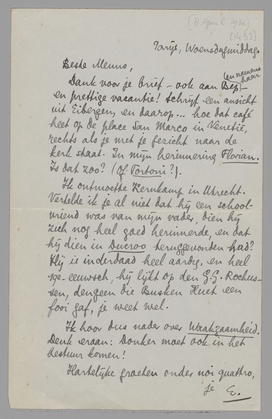 (8 April 1936)
(1433)
Parijs, Woensdagmiddag.
Beste Menno,
Dank voor je brief – ook aan Bep! – (en namens haar)
en prettige vacantie! Schrijf een ansicht
uit Eibergen, en daarop... hoe dat café
heet op de place San Marco in Venetië,
rechts als je met je gezicht naar de
kerk staat. In mijn herinnering Florian.
Is dat zoo? (Of Tortoni?).
Ik ontmoette Kernkamp in Utrecht.
Vertelde ik je al niet dat hij een school-
vriend was van mijn vader, dien hij
zich nog heel goed herinnerde, en dat
hij dien in Ducroo teruggevonden had?
Hij is inderdaad heel aardig, en heel
19e-eeuwsch, hij lijkt op den G.G. Rochus-
sen, dengeen die Busken Huet een
fooi gaf, je weet wel.
Ik hoor dus nader over Waakzaamheid.
Denk eraan: Donker moet ook in het
bestuur komen!
Hartelijke groeten onder ons quattro,
je E.